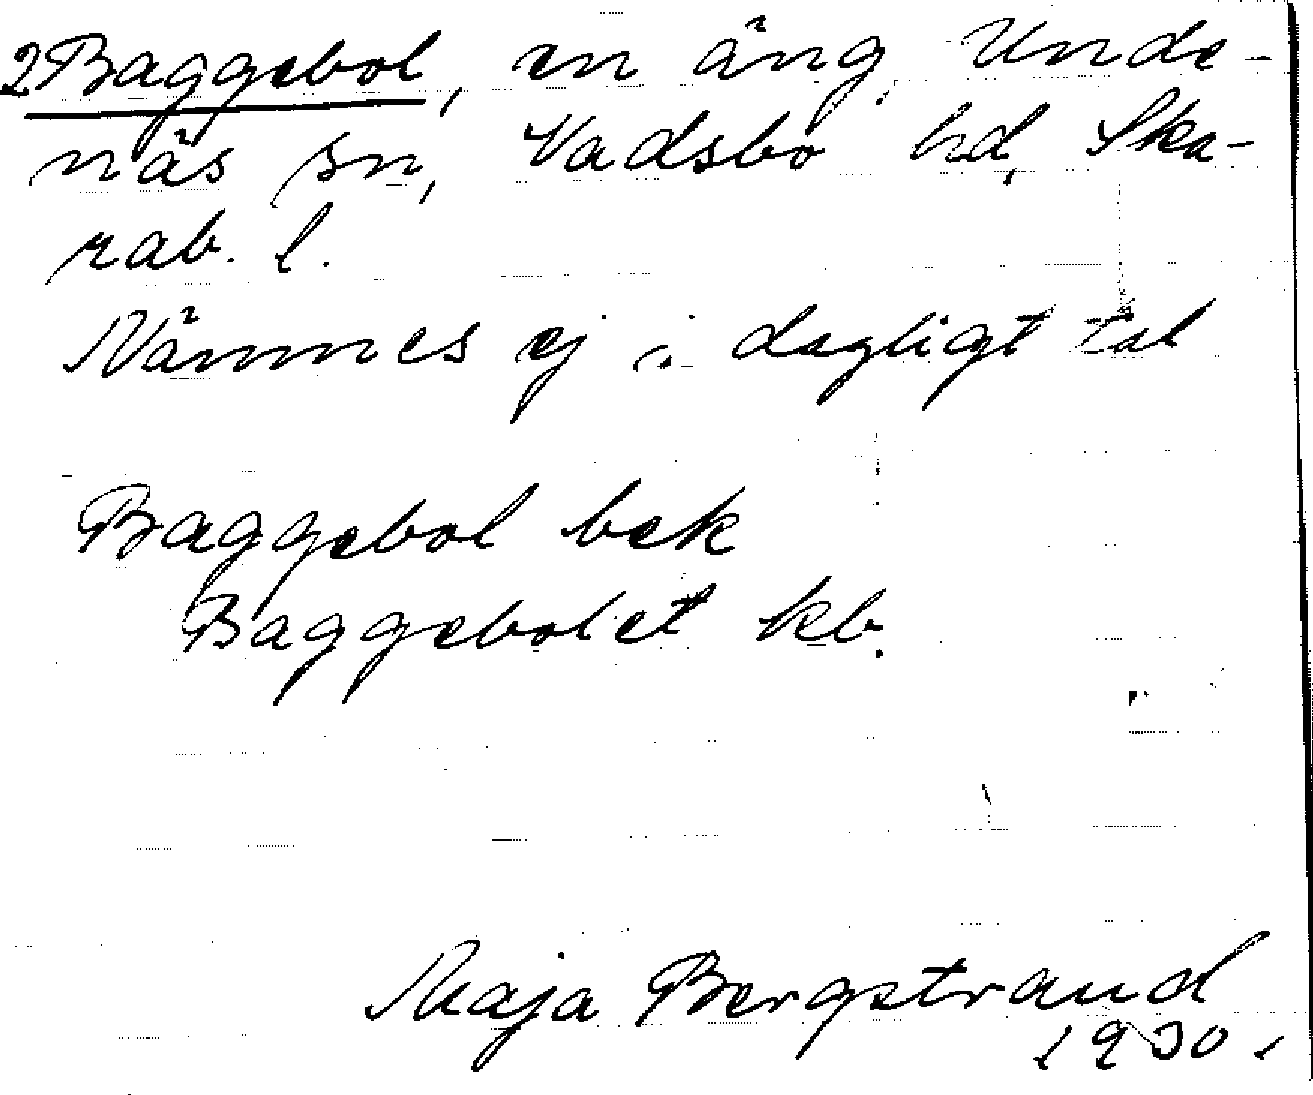 2 Baggebol, en äng, Unde-
näs sn, Vadsbo hd, Ska-
rab. l.
Nämnes ej i dagligt tal
Baggebol bek
Baggebolet kb.
Maja Bergstrand
1930.